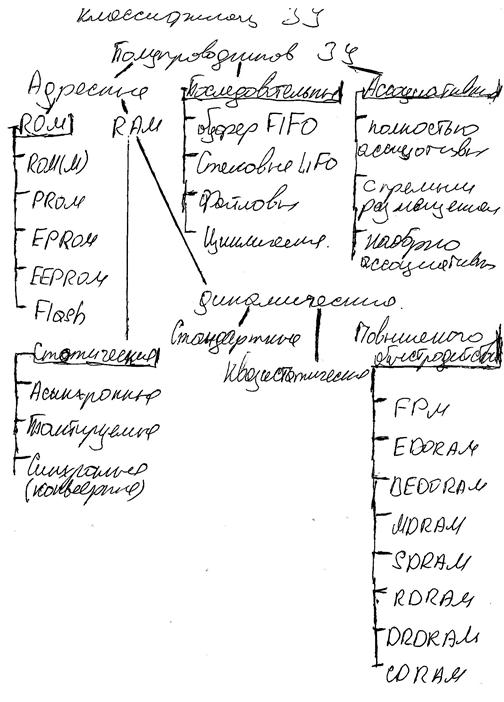 Классификация ЗУ
Полупроводников ЗУ
Адресные
ROM
ROM(M)
PROM
EPROM
EEPROM
Flash
RAM
Статические
Асинхронные
Тактируемые
Синхронные
(конвеерные)
Динамические.
Стандартные
Квазистатические
Повышеного
быстродейств
FPM
EDORAM
BEDORAM
MDRAM
SDRAM
RDRAM
DRDRAM
CDRAM
Последовательные
буфер FIFO
Стековые LIFO
Файловые
Циклические.
Ассоциативные
полностью
ассоциативн
с прямым
размещением
наборно
ассоциативн